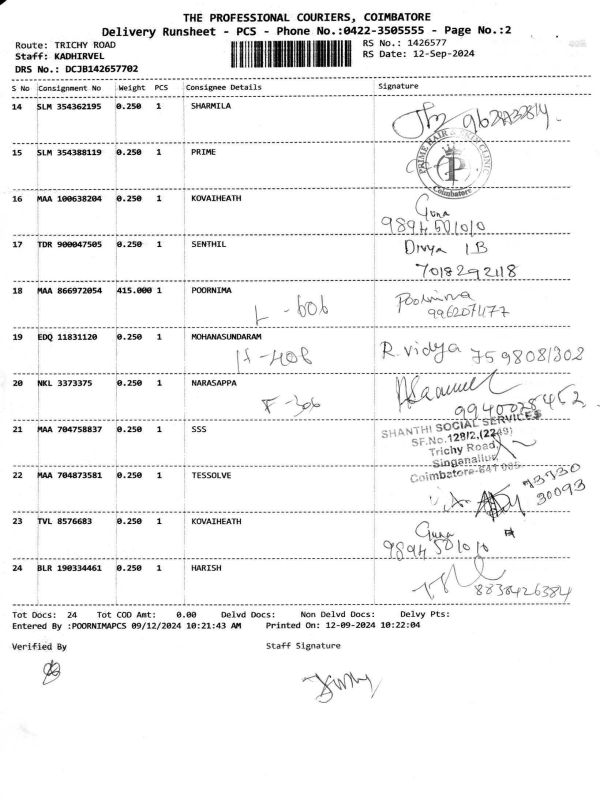 THE PROFESSIONAL COURIERS, COIMBATORE
Delivery Runsheet - PCS - Phone No.:0422-3505555 - Page No.:2
Route: TRICHY ROAD
Staff: KADHIRVEL
DRS No.: DCJB142657702
RS No.: 1426577
RS Date: 12-Sep-2024
S No Consignment No Weight PCS Consignee Details Signature
14 SLM 354362195 0.250 1 SHARMILA
15 SLM 354388119 0.250 1 PRIME
PRIME HAIR & SKIN CLINIC P Coimbatore
16 MAA 100638204 0.250 1 KOVAIHEATH Guna
9894501010
17 TDR 900047505 0.250 1 SENTHIL Divya IB
7018292118
18 MAA 866972054 415.000 1 POORNIMA Poornima
606 9962071177
19 EDQ 11831120 0.250 1 MOHANASUNDARAM R. vidya 7598081302
H-408
20 NKL 3373375 0.250 1 NARASAPPA
F-306 9940028452
21 MAA 704758837 0.250 1 SSS SHANTHI SOCIAL SERVICES
SF.No.128/2,(2249)
Trichy Road,
Singanallur,
Coimbatore-641 005
22 MAA 704873581 0.250 1 TESSOLVE 73730
30093
23 TVL 8576683 0.250 1 KOVAIHEATH Guna
9894501010
24 BLR 190334461 0.250 1 HARISH 8838426384
Tot Docs: 24 Tot COD Amt: 0.00 Delvd Docs: Non Delvd Docs: Delvy Pts:
Entered By :POORNIMAPCS 09/12/2024 10:21:43 AM Printed On: 12-09-2024 10:22:04
Verified By Staff Signature